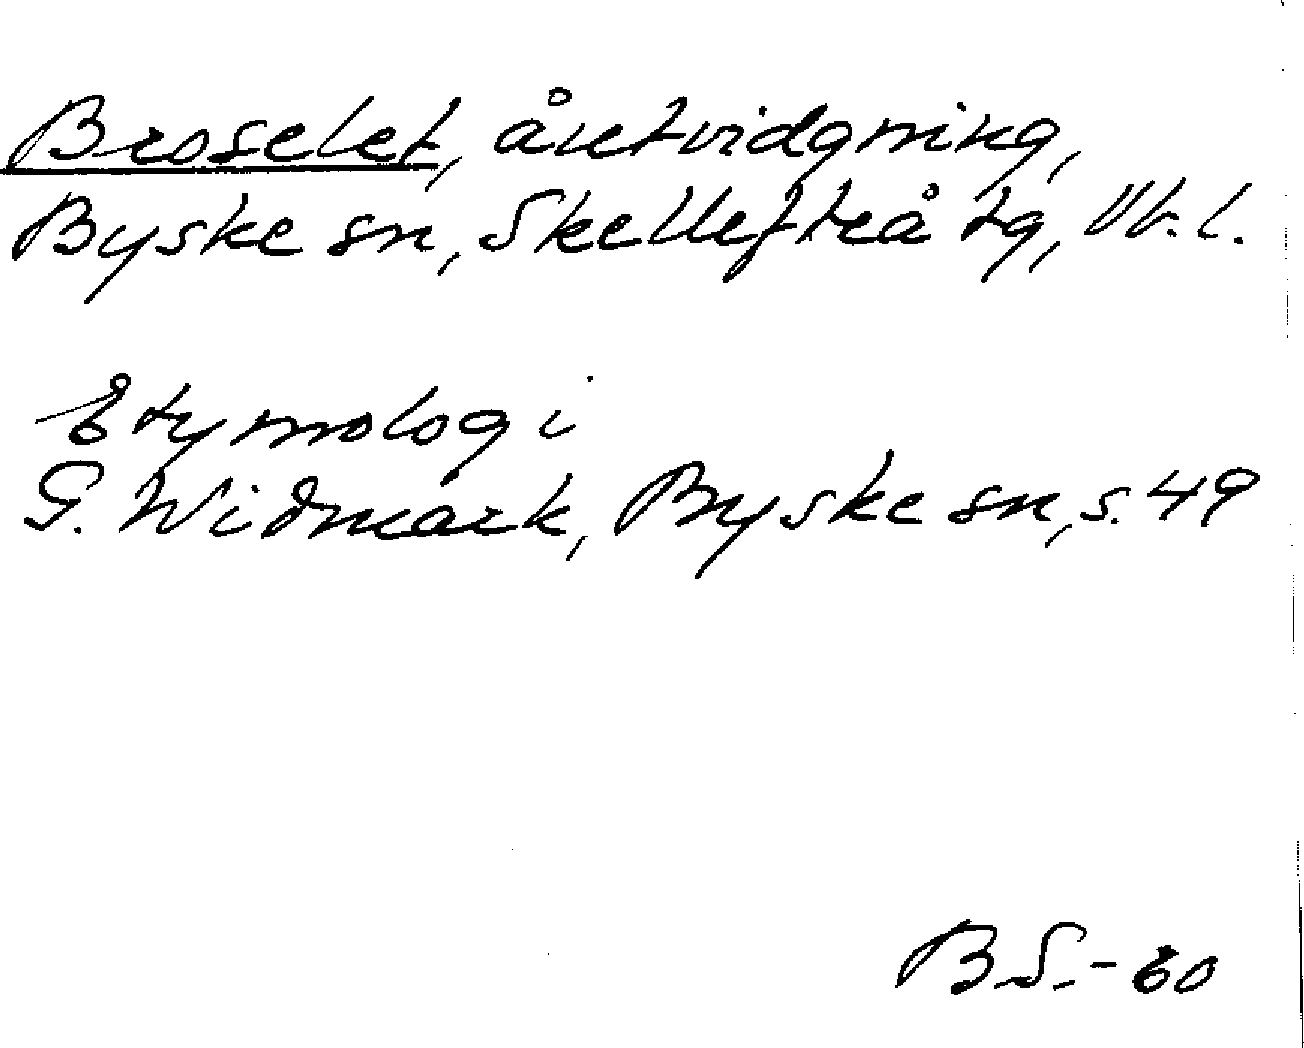 Broselet, åutvidgning,
Byske sn, Skellefteå tg, Vb. l.
Etymologi
G. Widmark, Byske sn, s. 49
B.S.-60